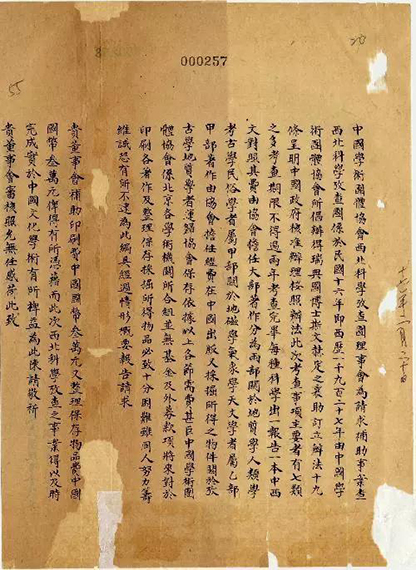 000257
中國學術團體協會西北科學攷查團理事會為請求補助事業查
西北科學攷查團係於民國十六年即西歷一千九百二十七年由中國學
術團體協會所倡辦得瑞典國博士斯文赫定之襄助訂立辦法十九
條呈明中國政府核准辦理按照辦法此次考查事項主要者有七類
之多考查期限不得過兩年考查完畢每種科學出一報告一本中西
文對照其費由協會擔任大部著作分為兩部關於地質學人類學
考古學民俗學者屬甲部關於地磁學氣象學天文學者屬乙部
甲部著作由協會擔任經費在中國出版又採掘所得之物件關於攷
古學地質學者運歸協會保存依據以上各節需費甚巨中國學術團
體協會係北京各學術機關所合組並無基金及外募款項將來對於
印刷各著作及整理保存採掘所得物品必致十分困難雖同人努力籌
維誠恐有所不逮為此編具經過情形概要報告請求
貴董事會補助印刷費中國國幣叁萬元又整理保存物品費中國
國幣叁萬元俾得有所憑藉而此次西北科學攷查之事業得以及時
完成實於中國文化學術有所裨益為此懷請敬祈
貴董事會審核照允無任感荷此致